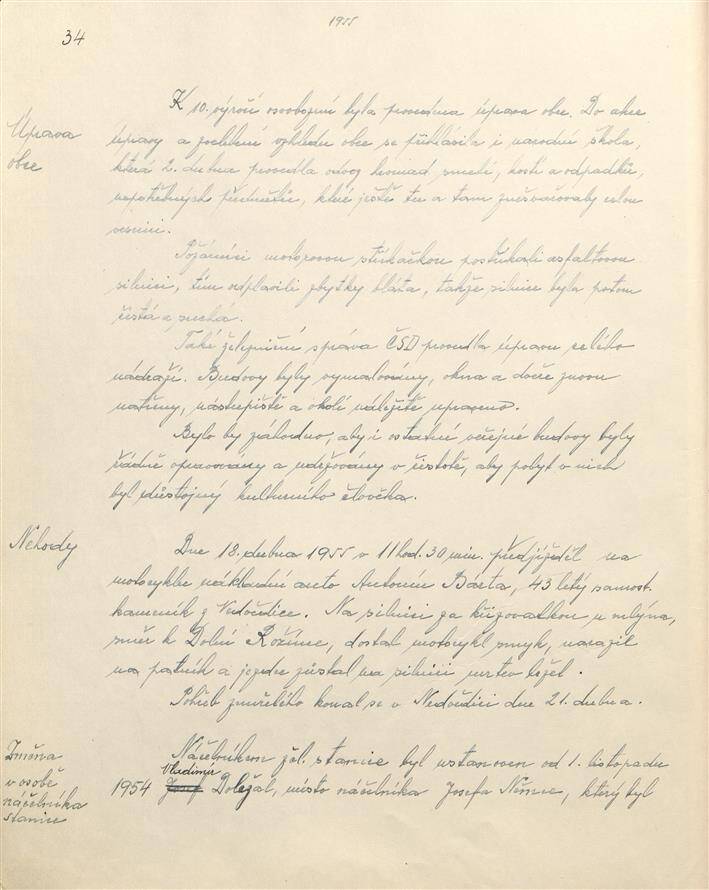 1955
34
Úprava
obce
K 10. výročí osvobození byla provedena úprava obce. Do akce
úpravy a zvelebení vzhledu obce se přihlásila i národní škola,
která 2. dubna provedla odvoz hromad smetí, kostí a odpadků,
nepotřebných předmětů, které ještě tu a tam znešvařovaly celou
vesnici.
Požárníci motorovou stříkačkou postříkali asfaltovou
silnici, tím odplavili zbytky bláta, takže silnice byla potom
čistá a suchá.
Také železniční správa ČSD provedla úpravu celého
nádraží. Budovy byly vymalovány, okna a dveře znovu
natřeny, nástupiště a okolí náležitě upraveno.
Bylo by záhodno, aby i ostatní veřejné budovy byly
řádně opravovány a udržovány v čistotě, aby pobyt v nich
byl důstojný kulturního člověka.
Nehody
Dne 18. dubna 1955 v 11 hod. 30 min. předjížděl na
motocyklu nákladní auto Antonín Bárta, 43 letý samost.
kameník z Nedvědice. Na silnici za křižovatkou u mlýna,
směr k Dolní Rožínce, dostal motocykl smyk, narazil
na patník a jezdec zůstal na silnici mrtev ležet.
Pohřeb zemřelého konal se v Nedvědici dne 21. dubna.
Změna
v osobě
náčelníka
stanice
Náčelníkem žel. stanice byl ustanoven od 1. listopadu
Vladimír
1954 Josef Doležal, místo náčelníka Josefa Němce, který byl